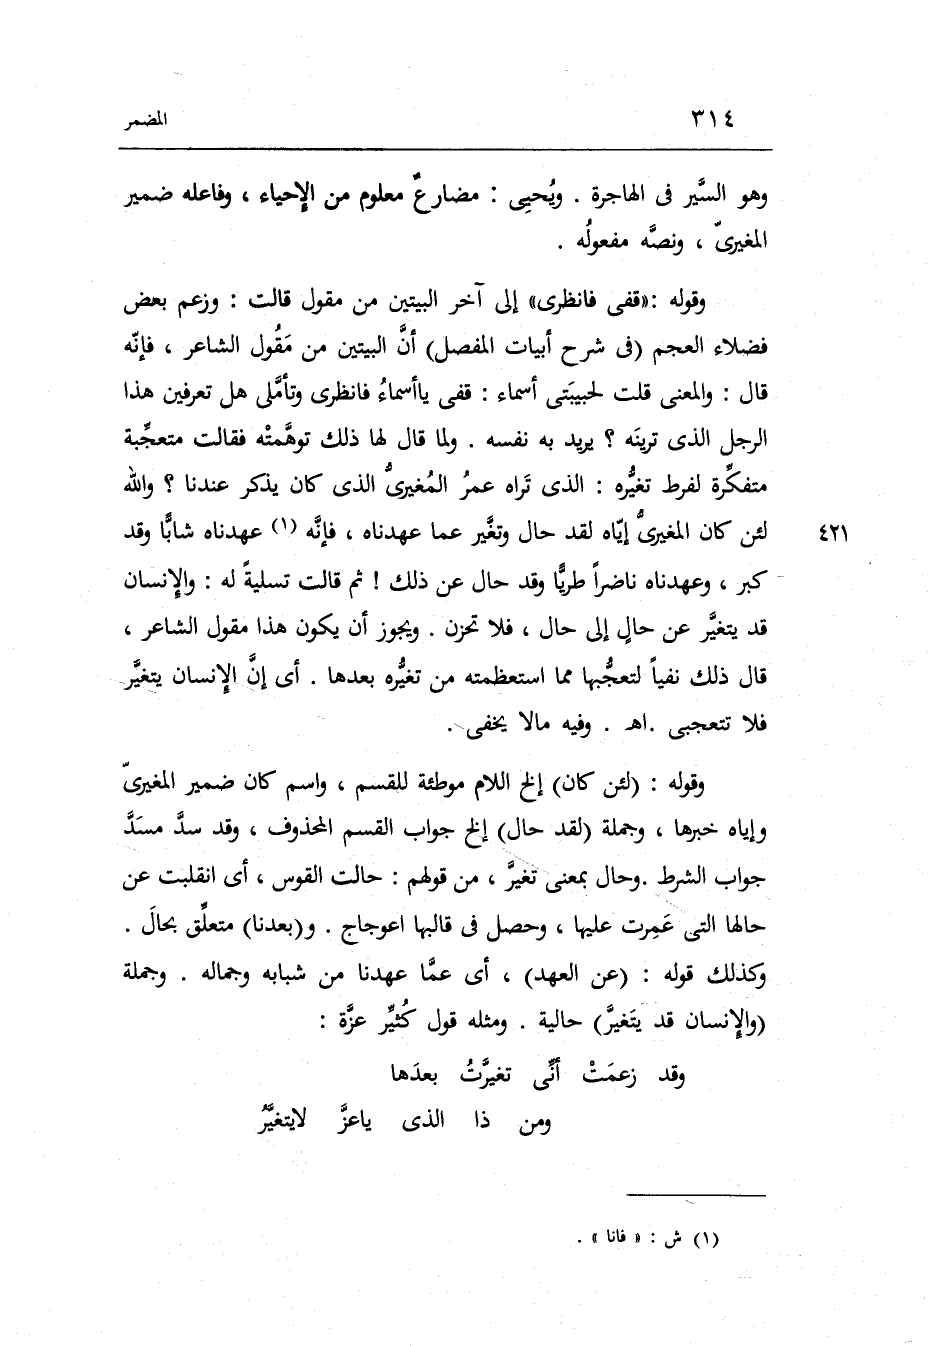 ٣١٤ المضمر
وهو السَّير فى الهاجرة . ويُحيِى : مضارعٌ معلوم من الإحياء ، وفاعله ضمير
المغيرىّ ، ونصَّه مفعولُه .
وقوله :«قفى فانظرى» إلى آخر البيتين من مقول قالت : وزعم بعض
فضلاء العجم (فى شرح أبيات المفصل) أنَّ البيتين من مَقُول الشاعر ، فإنّه
قال : والمعنى قلت لحبيبَتى أسماء : قفى ياأسماءُ فانظرى وتأمَّلى هل تعرفين هذا
الرجل الذى ترينَه ؟ يريد به نفسه . ولما قال لها ذلك توهَّمتْه فقالت متعجِّبة
متفكِّرة لفرط تغيُّره : الذى تَراه عمرُ المُغيرىُّ الذى كان يذكر عندنا ؟ والله
لئن كان المغيرىُّ إيّاه لقد حال وتغَّير عما عهدناه ، فإنَّه (١) عهدناه شابًّا وقد
٤٢١
كبر ، وعهدناه ناضراً طريًّا وقد حال عن ذلك ! ثم قالت تسليةً له : والإنسان
قد يتغيَّر عن حالٍ إلى حال ، فلا تحزن . ويجوز أن يكون هذا مقول الشاعر ،
قال ذلك نفياً لتعجُّبها مما استعظمته من تغيُّره بعدها . أى إنَّ الإنسان يتغيَّر
فلا تتعجبى .اهـ . وفيه مالا يخفى .
وقوله : (لئن كان) إلخ اللام موطئة للقسم ، واسم كان ضمير المغيرىّ
وإياه خبرها ، وجملة (لقد حال) إلخ جواب القسم المحذوف ، وقد سدَّ مسَدَّ
جواب الشرط .وحال بمعنى تغيرَّ ، من قولهم : حالت القوس ، أى انقلبت عن
حالها التى عَمِرت عليها ، وحصل فى قالبها اعوجاج . و(بعدنا) متعلِّق بحالَ .
وكذلك قوله : (عن العهد) ، أى عمَّا عهدنا من شبابه وجماله . وجملة
(والإنسان قد يتَغيرَّ) حالية . ومثله قول كُثيِّر عزَّة :
وقد زعمَتْ أنِّى تغيرَّتُ بعدَها
ومن ذا الذى ياعزَّ لايتغيَّرُ
(١) ش : « فانا » .